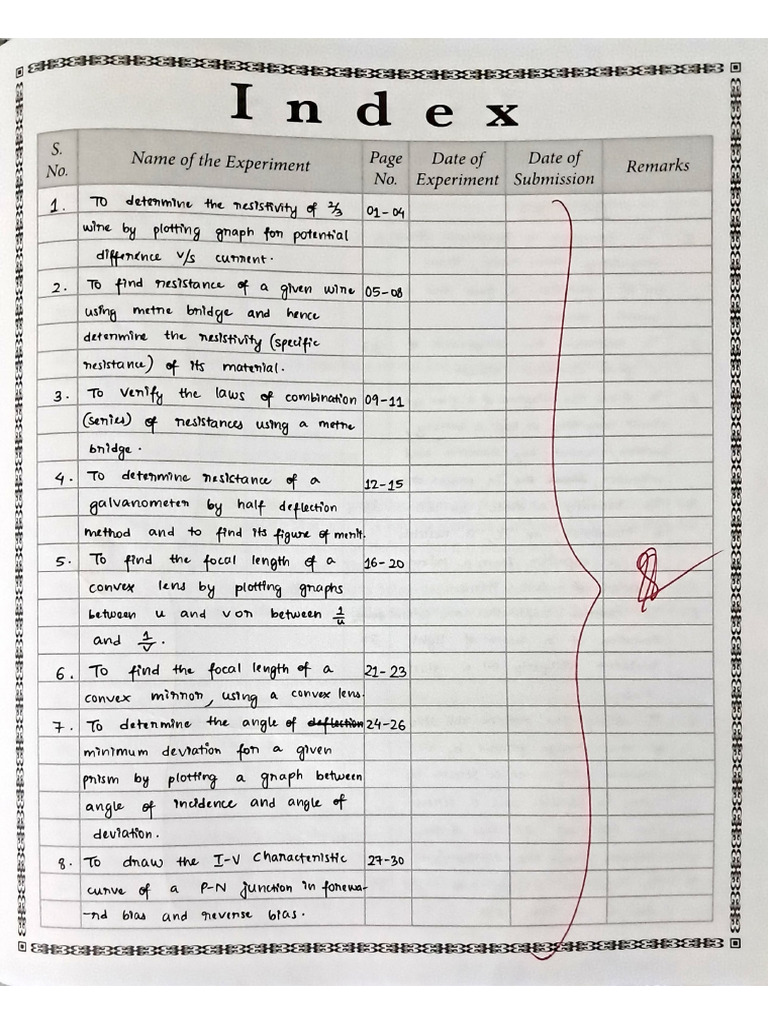 Index
S. No. Name of the Experiment Page No. Date of Experiment Date of Submission Remarks
1. To determine the resistivity of 2/3 01-04
wire by plotting graph for potential
difference v/s current.
2. To find resistance of a given wire 05-08
using metre bridge and hence
determine the resistivity (specific
resistance) of its material.
3. To verify the laws of combination 09-11
(series) of resistances using a metre
bridge.
4. To determine resistance of a 12-15
galvanometer by half deflection
method and to find its figure of merit.
5. To find the focal length of a 16-20
convex lens by plotting graphs
between u and v or between 1/u
and 1/v.
6. To find the focal length of a 21-23
convex mirror, using a convex lens.
7. To determine the angle of deflection 24-26
minimum deviation for a given
prism by plotting a graph between
angle of incidence and angle of
deviation.
8. To draw the I-V Characteristic 27-30
curve of a P-N junction in forewa-
-rd bias and reverse bias.